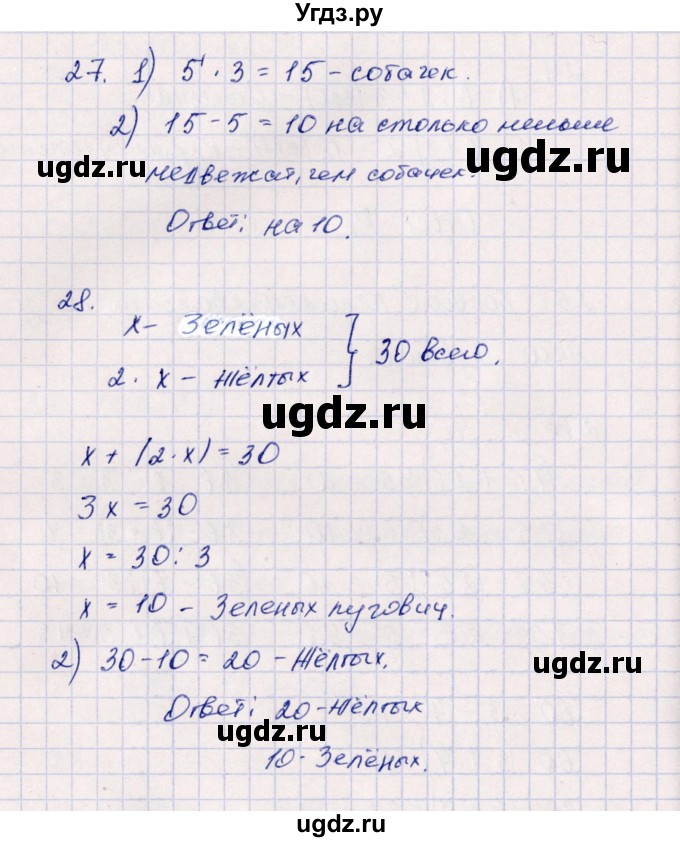 Угдз.ру
27. 1) 5 · 3 = 15 - собачек.
2) 15 - 5 = 10 на столько меньше
ugdz.ru
ugdz.ru
медвежат, чем собачек.
Ответ: на 10.
28.
x - Зелёных
2 · x - Жёлтых
30 всего.
ugdz.ru
x + (2 · x) = 30
3x = 30
x = 30 : 3
x = 10 - Зеленых пуговиц.
2) 30 - 10 = 20 - Жёлтых.
ugdz.ru
Ответ: 20 - Жёлтых
ugdz.ru
10 - Зелёных.
ugdz.ru